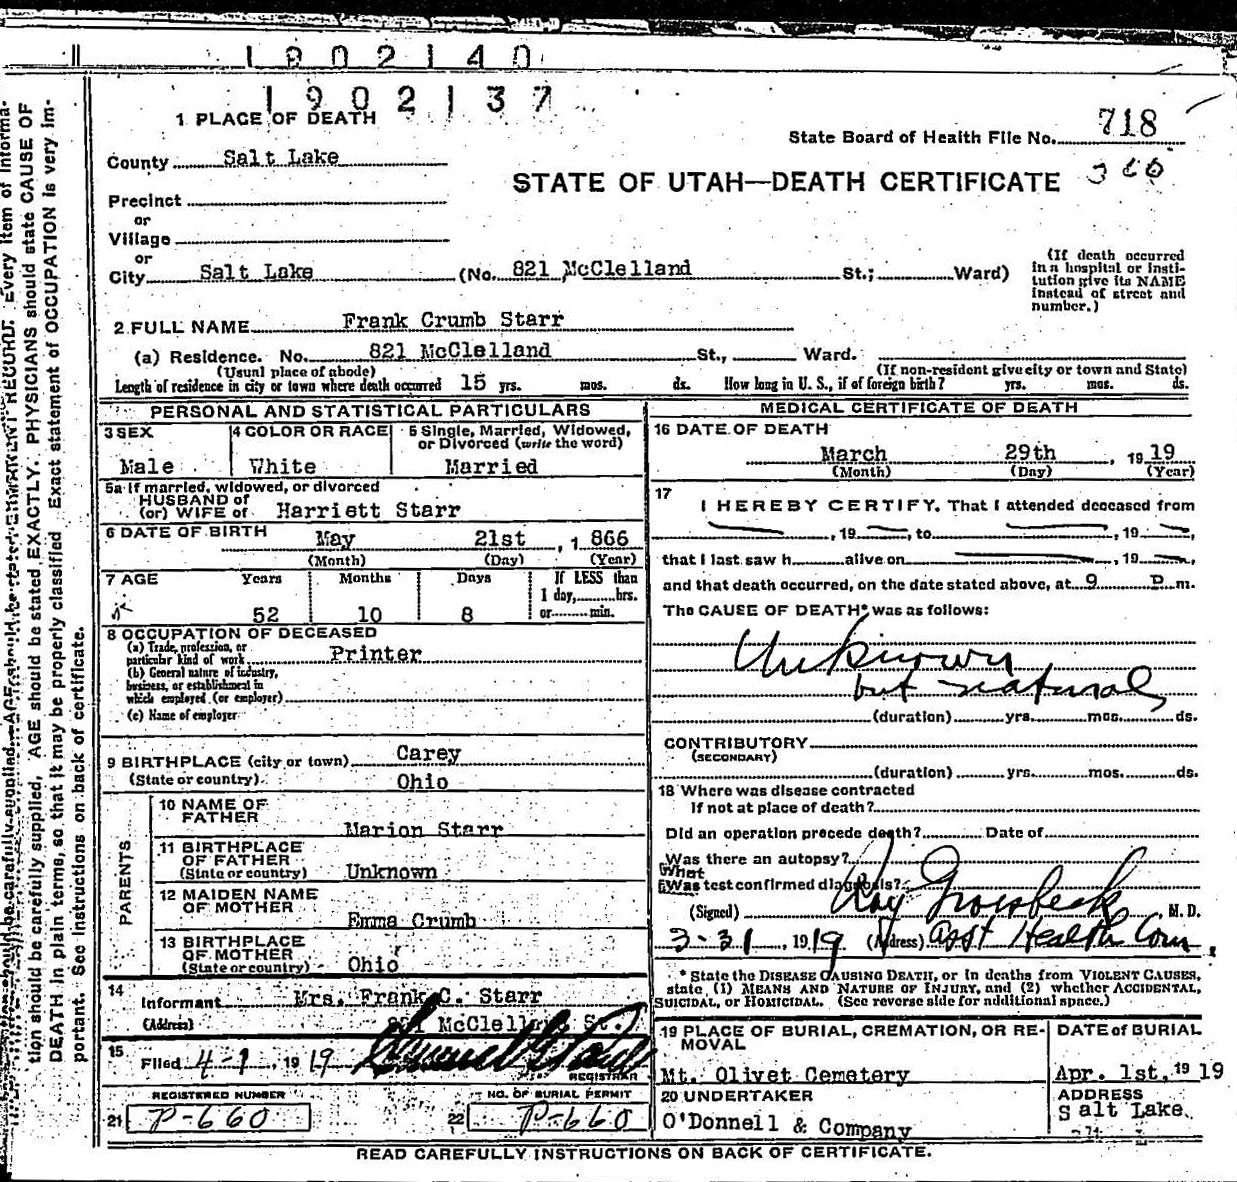 1902140
1902137
1 PLACE OF DEATH
State Board of Health File No. 718
County Salt Lake
360
STATE OF UTAH—DEATH CERTIFICATE
Precinct
or
Village
or
City Salt Lake (No. 821 McClelland St.; Ward)
(If death occurred
in a hospital or insti-
tution give its NAME
instead of street and
number.)
2 FULL NAME Frank Crumb Starr
(a) Residence. No. 821 McClelland St., Ward.
(Usual place of abode) (If non-resident give city or town and State)
Length of residence in city or town where death occurred 15 yrs. mos. ds. How long in U. S., if of foreign birth? yrs. mos. ds.
PERSONAL AND STATISTICAL PARTICULARS
3 SEX
Male
4 COLOR OR RACE
White
5 Single, Married, Widowed,
or Divorced (write the word)
Married
5a If married, widowed, or divorced
HUSBAND of
(or) WIFE of Harriett Starr
6 DATE OF BIRTH
May 21st, 1 866
(Month) (Day) (Year)
7 AGE Years Months Days
52 10 8
If LESS than
1 day, hrs.
or min.
8 OCCUPATION OF DECEASED
(a) Trade, profession, or
particular kind of work Printer
(b) General nature of industry,
business, or establishment in
which employed (or employer)
(c) Name of employer
9 BIRTHPLACE (city or town) Carey
(State or country) Ohio
PARENTS
10 NAME OF
FATHER Marion Starr
11 BIRTHPLACE
OF FATHER
(State or country) Unknown
12 MAIDEN NAME
OF MOTHER Emma Crumb
13 BIRTHPLACE
OF MOTHER
(State or country) Ohio
14 Informant Mrs. Frank C. Starr
(Address) 821 McClelland St.
15 Filed 4-1, 1919
REGISTRAR
REGISTERED NUMBER
21 P-660
NO. OF BURIAL PERMIT
22 P-660
MEDICAL CERTIFICATE OF DEATH
16 DATE OF DEATH
March 29th, 1919
(Month) (Day) (Year)
17 I HEREBY CERTIFY, That I attended deceased from
, 19 , to , 19 ,
that I last saw h alive on , 19 ,
and that death occurred, on the date stated above, at 9 P m.
The CAUSE OF DEATH* was as follows:
Unknown
but natural
(duration) yrs. mos. ds.
CONTRIBUTORY
(SECONDARY)
(duration) yrs. mos. ds.
18 Where was disease contracted
If not at place of death?
Did an operation precede death? Date of
Was there an autopsy?
What
Was test confirmed diagnosis?
(Signed) Ray Groesbeck, M. D.
3-31, 1919 (Address) Asst Health Com.
* State the DISEASE CAUSING DEATH, or in deaths from VIOLENT CAUSES,
state, (1) MEANS AND NATURE OF INJURY, and (2) whether ACCIDENTAL,
SUICIDAL, or HOMICIDAL. (See reverse side for additional space.)
19 PLACE OF BURIAL, CREMATION, OR RE-
MOVAL
Mt. Olivet Cemetery
DATE of BURIAL
Apr. 1st, 1919
20 UNDERTAKER
O'Donnell & Company
ADDRESS
Salt Lake
READ CAREFULLY INSTRUCTIONS ON BACK OF CERTIFICATE.
Every item of informa-
tion should be carefully supplied. AGE should be stated EXACTLY. PHYSICIANS should state CAUSE OF
DEATH in plain terms, so that it may be properly classified. Exact statement of OCCUPATION is very im-
portant. See instructions on back of certificate.